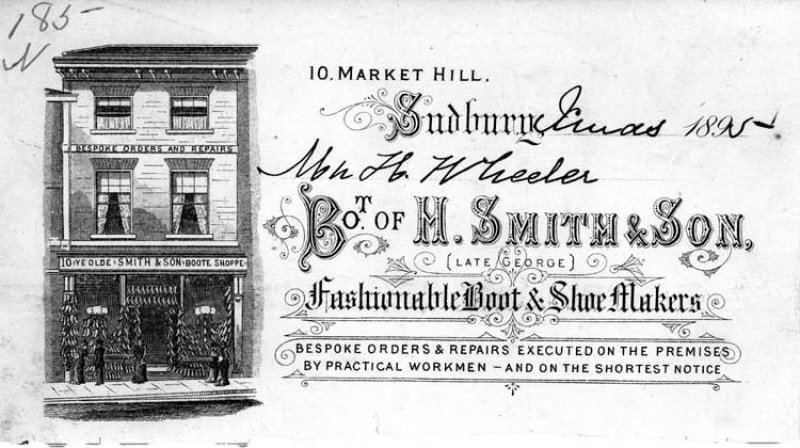 185-
N
10, MARKET HILL.
Sudbury Xmas 1895
Mr H. Wheeler
BOT. OF H. SMITH & SON,
(LATE GEORGE)
Fashionable Boot & Shoe Makers
BESPOKE ORDERS & REPAIRS EXECUTED ON THE PREMISES
BY PRACTICAL WORKMEN – AND ON THE SHORTEST NOTICE
BESPOKE ORDERS AND REPAIRS
10 YE OLDE SMITH & SON BOOTE SHOPPE